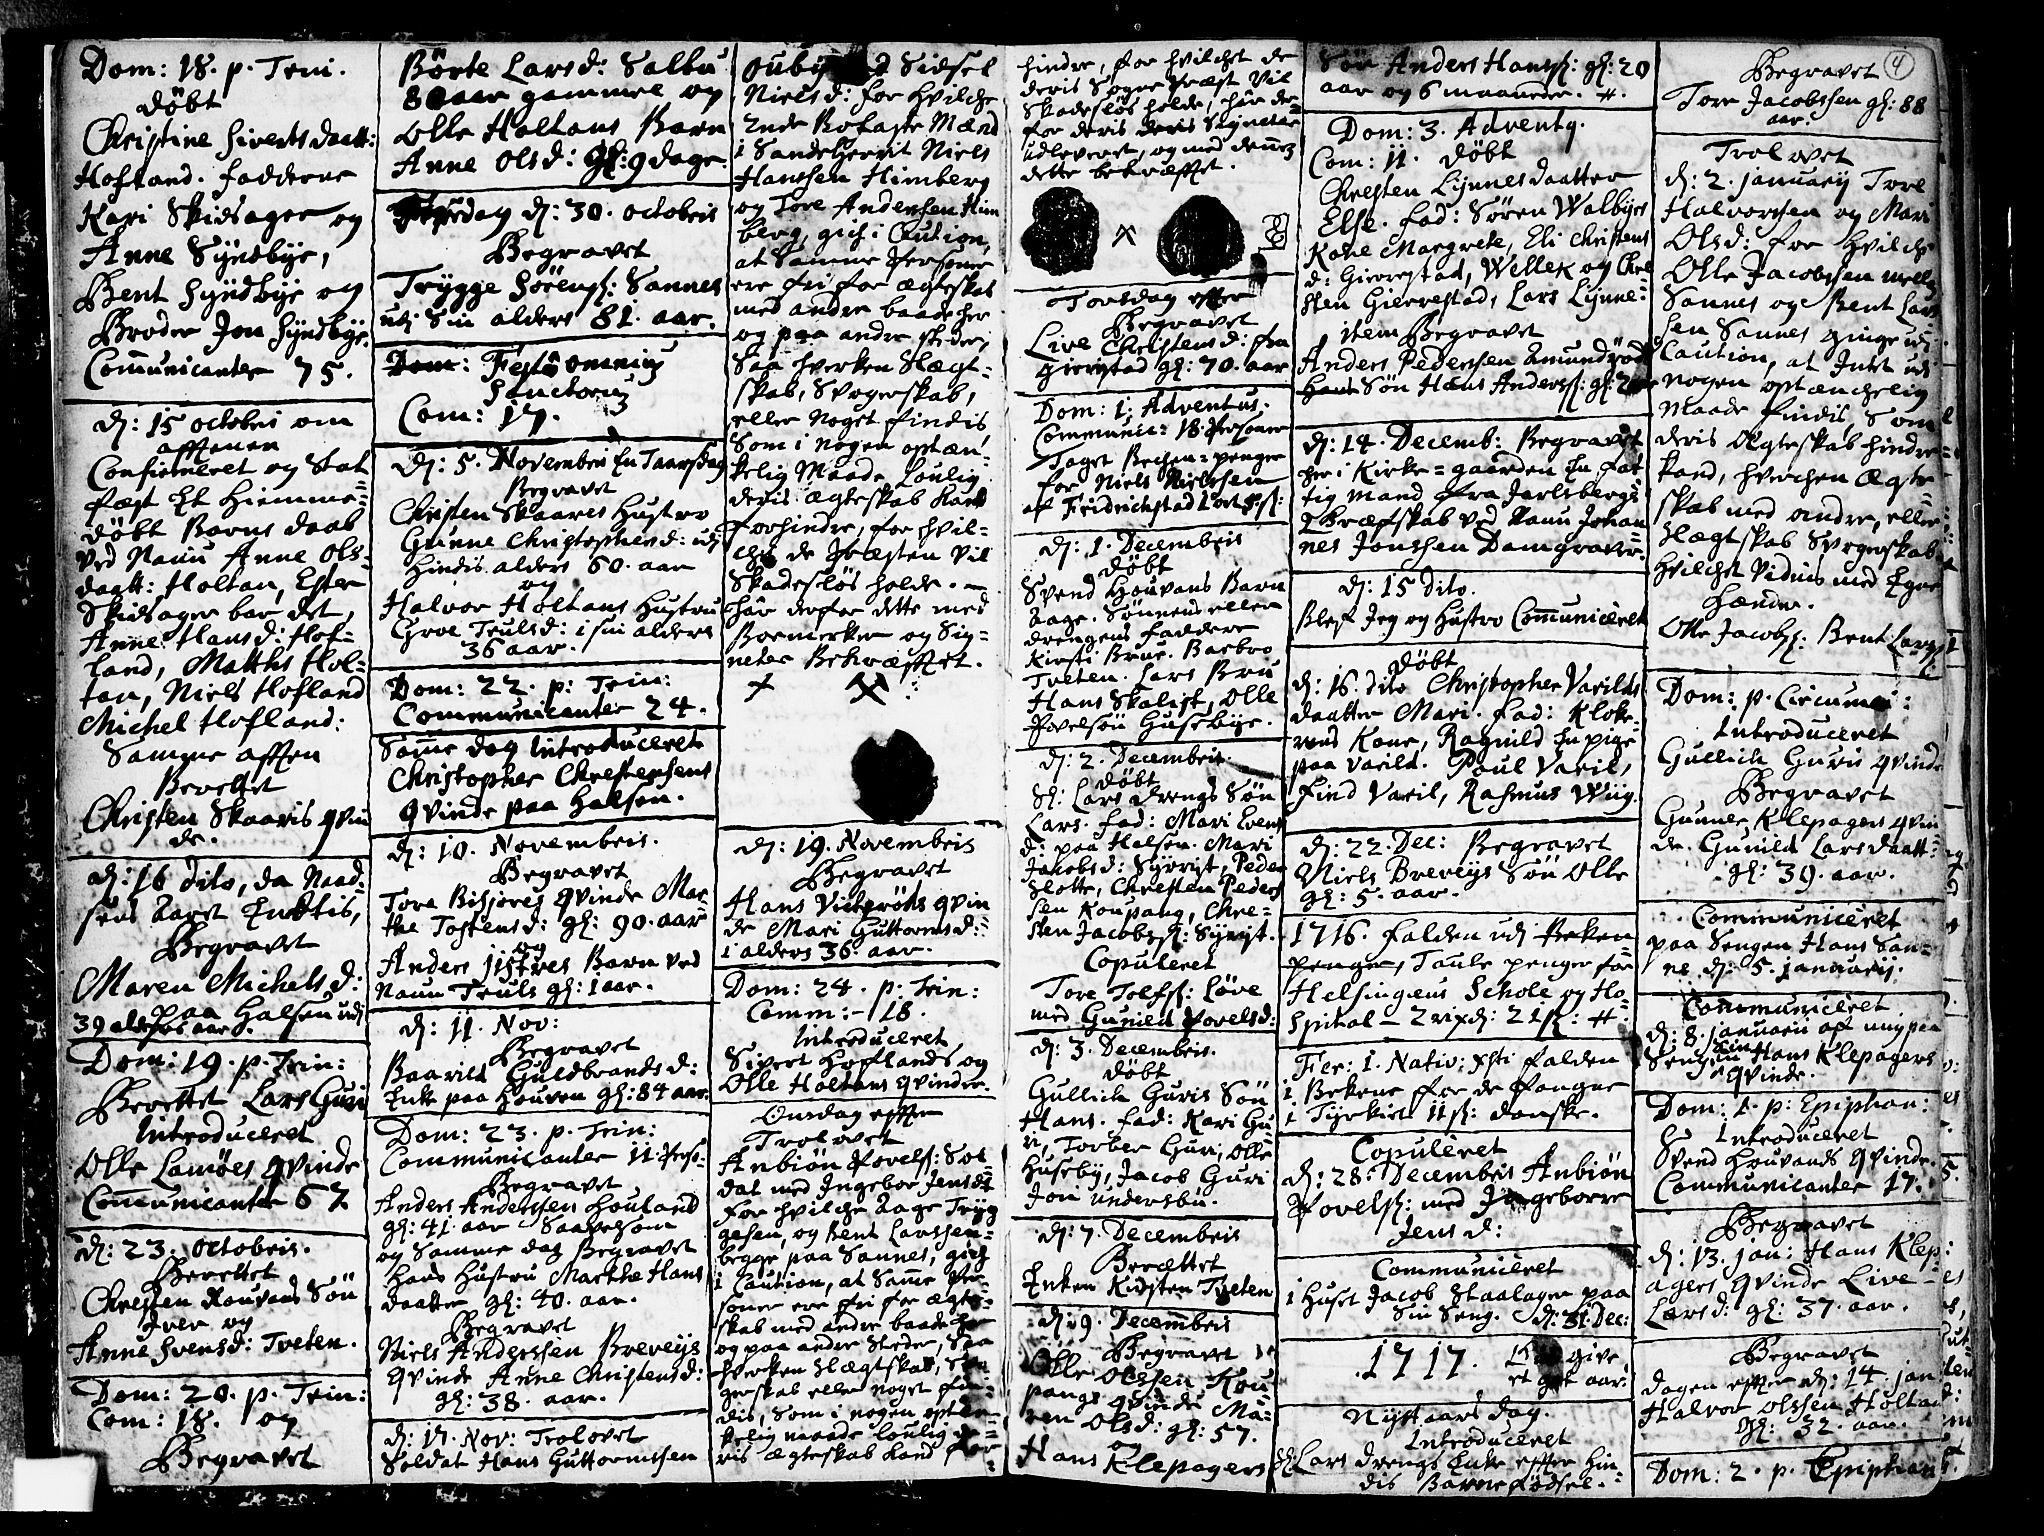 Dom: 18. p. Trin.
döbt
Christine Siverts daatt:
Hofland. fadderne
Kari Skidsager og
Anne Syndbye,
Bent Syndbye og
Broder Jon Syndbye.
Communicanter 75.
d: 15 octobris om
afftenen
Confirmeret og Stat
fæst Et hiemme-
döbt Barns daab
ved Naun Anne Ols-
daatt: Holtan, Ester
Skidsager bar det,
Anne Hans d: Hof-
land, Matths Hol-
tan, Niels Hofland
Michel Hofland:
Samme afften
Berettet
Christen Skaaris qvin
de.
d: 16 dito, da Naad-
sens Aaret Endtis,
Begravet
Maren Michels d:
paa Halsen udj
39 alders aar.
Dom: 19. p. Trin:
Berettet Lars Guri
Introduceret
Olle Lamöes qvinde
Communicanter 67
d: 23. octobris.
Berettet
Christen Houvans Sön
Iver og
Anne Svens d: Tveten.
Dom: 20. p. Trin:
Com: 18. og
Begravet
Börte Lars d: Salbu
80 aar gammel og
Olle Holtans Barn
Anne Ols d: gl: 9 dage.
d: 30. octobris
Begravet
Trygge Sörens: Sannes
udj Sin alders 81. aar.
Dom: Festo omnium
Sanctorum
Com: 17.
d: 5. Novembris En Taarsdag
Begravet
Christen Skaares Hustro
Gunne Christophers d: udj
hindis alders 60. aar
og
Halvor Holtans Hustru
Groe Truls d: i sin alders
36 aar.
Dom: 22. p: Trin:
Communicanter 24.
Samme dag Introduceret
Christopher Chrestensens
qvinde paa Halsen.
d: 10. Novembris.
Begravet
Tore Bisjores qvinde Mar-
the Tostens d: gl: 90. aar
og
Anders Jistres Barn ved
Naun Truls gl: 1 aar.
d: 11. Nov:
Begravet
Baarild Guldbrands d:
Enke paa Houven gl: 84 aar.
Dom: 23. p. Trin:
Communicanter 11: Perso-
Begravet
Anders Anderssen Houland
gl: 41. aar Saavelsom
og Samme dag Begravet
hans Hustru Marthe Hans
daatter gl: 40. aar.
Begravet
Niels Anderssen Breveys
qvinde Anne Christens d:
gl: 38. aar.
d: 17. Nov: Trolovet
Soldat Hans Guttormsen
Sidsel
Niels d: for hvilche
2nde Bofaste Mænd
i Sandeherrit Niels
Hanssen Himberg
og Tore Andersen Him
berg, gich i Caution,
at Samme Personer
ere fri for ægteskab
med andre baade her
og paa andre steder,
Saa hverken Slægt-
skab, Svogerskab,
eller noget findis
Som i nogen optæn-
kelig Maade Loulig
deris ægteskab kand
forhindre, for hvil-
chet de Præsten Vil
Skadeslös holde. –
her derfor dette med
Boemerker og Sig-
neter Bekræfftet.
d: 19. Novembris
Begravet
Hans Vigeröds qvin
de Mari Guttorms d:
i alders 36. aar.
Dom: 24. p. Trin:
Comm: – 18.
Introduceret
Sivert Hoflands og
Olle Holtans qvinder.
Onsdag efften
Trolovet
Anbiön Povels: Sol-
dat med Ingebor Jens d:
for hvilche Aage Tryg
gesen, og Bent Larssen
begge paa Sannes, gich
i Caution, at Samme Per-
soner ere fri for ægte-
skab med andre baade her
og paa andre Steder, Saa
hverken Slægtskab, Svo-
gerskab eller noget fin-
dis, Som i nogen opten-
kelig maade loulig de-
ris ægteskab kand for-
hindre, for hvilchet de
deris Sogne Præst Vil
Skadeslös holde, her der-
for deris deris Signeter
udleveret, og med dennem
dette bekræfftet.
Torsdag efften
Begravet
Live Christens d: fra
gierrstad gl: 70. aar
Dom: 1. Adventus.
Communic: 18. Personer
Taget Becken-penger
for Niels Nielssen
af Fridrichstad
d: 1. Decembris
döbt
Svend Houvans Barn
Aage. Sönnens eller
drengens faddere
Kirsti Brue. Barbro
Tveten. Lars Bru
Hans Skalist, Olle
Povelsön Huseby.
d: 2. Decembris.
döbt
Sl: Lars drengs Sön
Lars. fad: Mari Evens
d: paa Halsen. Mari
Jacobs d: Syrrist, Peder
Slotte, Christen Peders
sen Koupang, Chre-
sten Jacobs: Syrrist.
Copuleret
Tore Tolfs: Löve
med Gunild Povels d:
d: 3. Decembris.
döbt
Gullich Guris Sön
Hans. fad: Kari Gu
ri, Torber Guri, Olle
Huseby, Jacob Guri
Jon Undersbu.
d: 7. Decembris
Berættet
Enken Kirsten Tveten
d: 9. Decembris
Begravet
Olle Olssen Kou
pangs qvinde Ma-
ren Ols d: gl: 57.
og
Hans Klepagers
Sön Anders Hans: gl: 20
aar og 6 maaneder.
Dom: 3. Advents.
Com: 11. döbt
Christen Lynnes daatter
Else. fad: Sören Walbyes
Kone Margrete, Eli Christens
d: Gierrestad, Wellek og Chre
sten Gierrestad, Lars Lynne:
item Begravet
Anders Pedersen Amundröd
Sön Hans Anders: gl:
d: 14. Decemb: Begravet
her i Kirke-gaarden En fat
tig mand fra Jarlsbergs
Græfskab ved Naun Johan
nes Jonssen Damgraver.
d: 15 Dito.
Blef Jeg og Hustro Communiceret
döbt
d: 16. dito Christopher Varilds
daatter Mari. fad: Kloke-
rens Kone, Ragnild En pige
paa Varild. Poul Varil,
Find Varil, Rasmus Wiig.
d: 22. Dec: Begravet
Niels Breveys Sön Olle
gl: 5. aar.
1716. falden udj Beken
penger, Taule penger for
Helsingöens Schole og Ho-
spital – 2 rixd: 21 s:
Fer: 1. Nativ: Xsti falden
i Bekene for de fangne
i Tyrkiet 11 s: danske.
Copuleret
d: 28. Decembris Anbiön
Povels: med Ingeborre
Jens d:
Communiceret
i Huset Jacob Staalager paa
Sin Seng. d: 31. Dec:
1717. Gud give
et got aar.
Nyttaars dag.
Introduceret
Sl: Lars drengs Enke efter hin
dis Barnefödsel.
4
Begravet
Tore Jacobssen gl: 88
aar.
Trolovet
d: 2. january Tore
Halvorssen og Mari
Ols d: for hvilche
Olle Jacobssen mell
Sannes og Bent Lars
sen Sannes ginge udj
Caution, at Intet udj
nogen optænchelig
Maade findis, Som
deris Ægteskab hindre
kand, hverchen Ægte
skab med andre, eller
Slægtskab Svogerskab,
hvilchet vidnis med Egne
hænder.
Olle Jacobs: Bent Lars:
Dom: p. Circumci:
Introduceret
Gullich Guris qvinde
Begravet
Gunner Klepagers qvin
de Gunild Lars daatt:
gl: 39. aar.
Communiceret
paa Sengen Hans San-
nes d: 5. january.
Communiceret
d: 8. january af mig paa
Sengen Hans Klepagers
qvinde.
Dom: 1. p: Epiphan:
Introduceret
Svend Houvands qvinde.
Communicanter 17.
Begravet
d: 13. jan: Hans Klep-
agers qvinde Live
Lars d: gl: 37. aar.
Begravet
dagen effter d: 14. jan
Halvor Olssen Holtan
gl: 32. aar.
Dom: 2. p. Epiphan